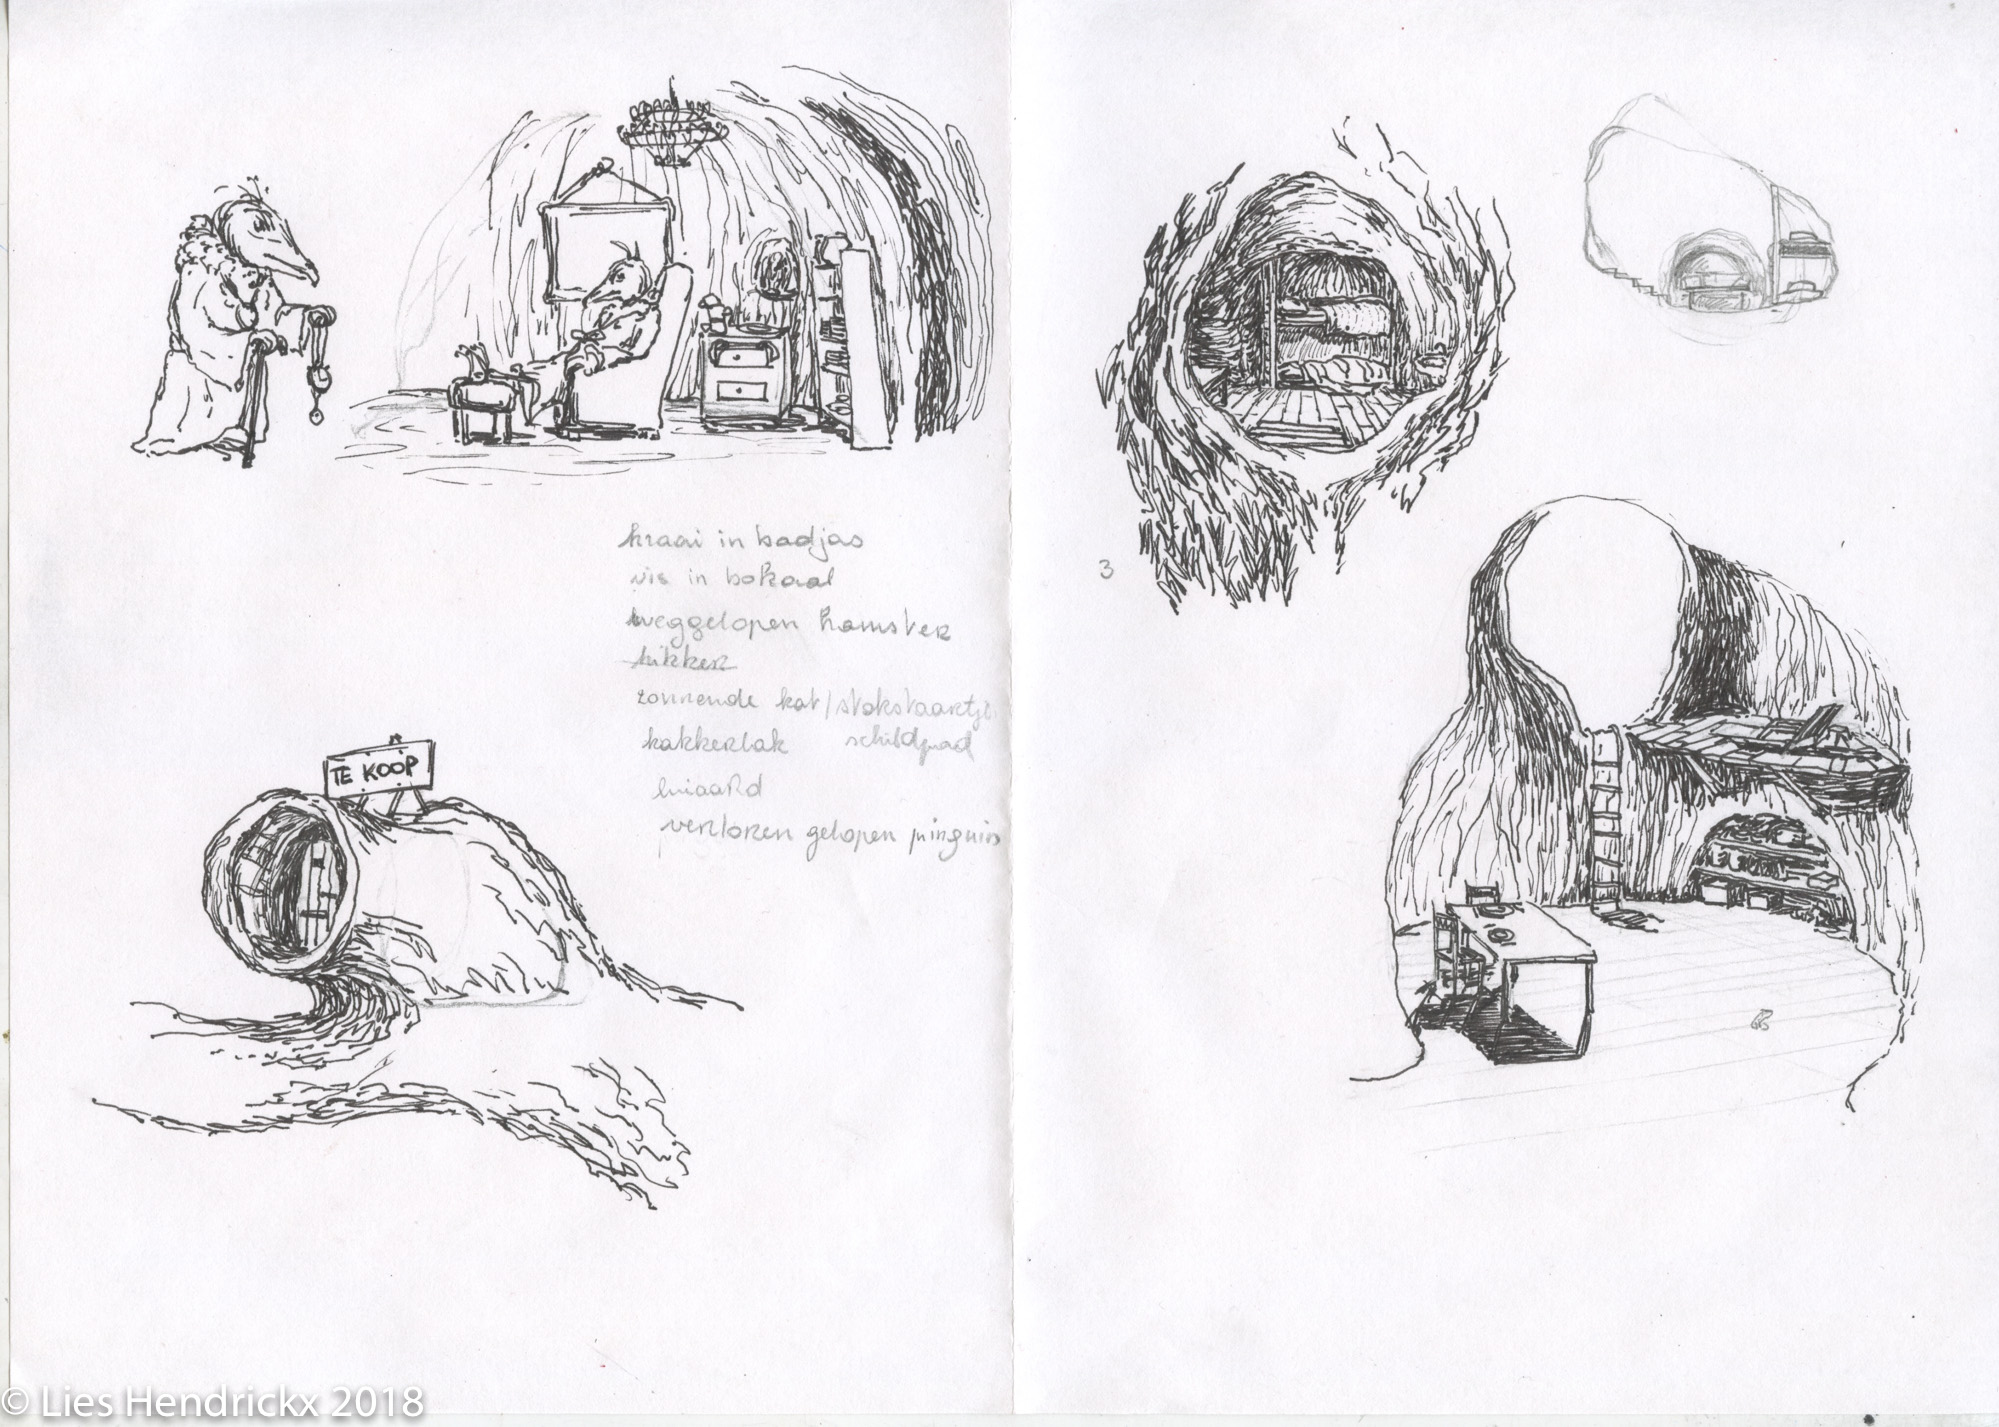 kraai in badjas
vis in bokaal
weggelopen hamster
kikker
zonnende kat/stokstaartje
kakkerlak schildpad
luiaard
verloren gelopen pinguin
TE KOOP
3
© Lies Hendrickx 2018